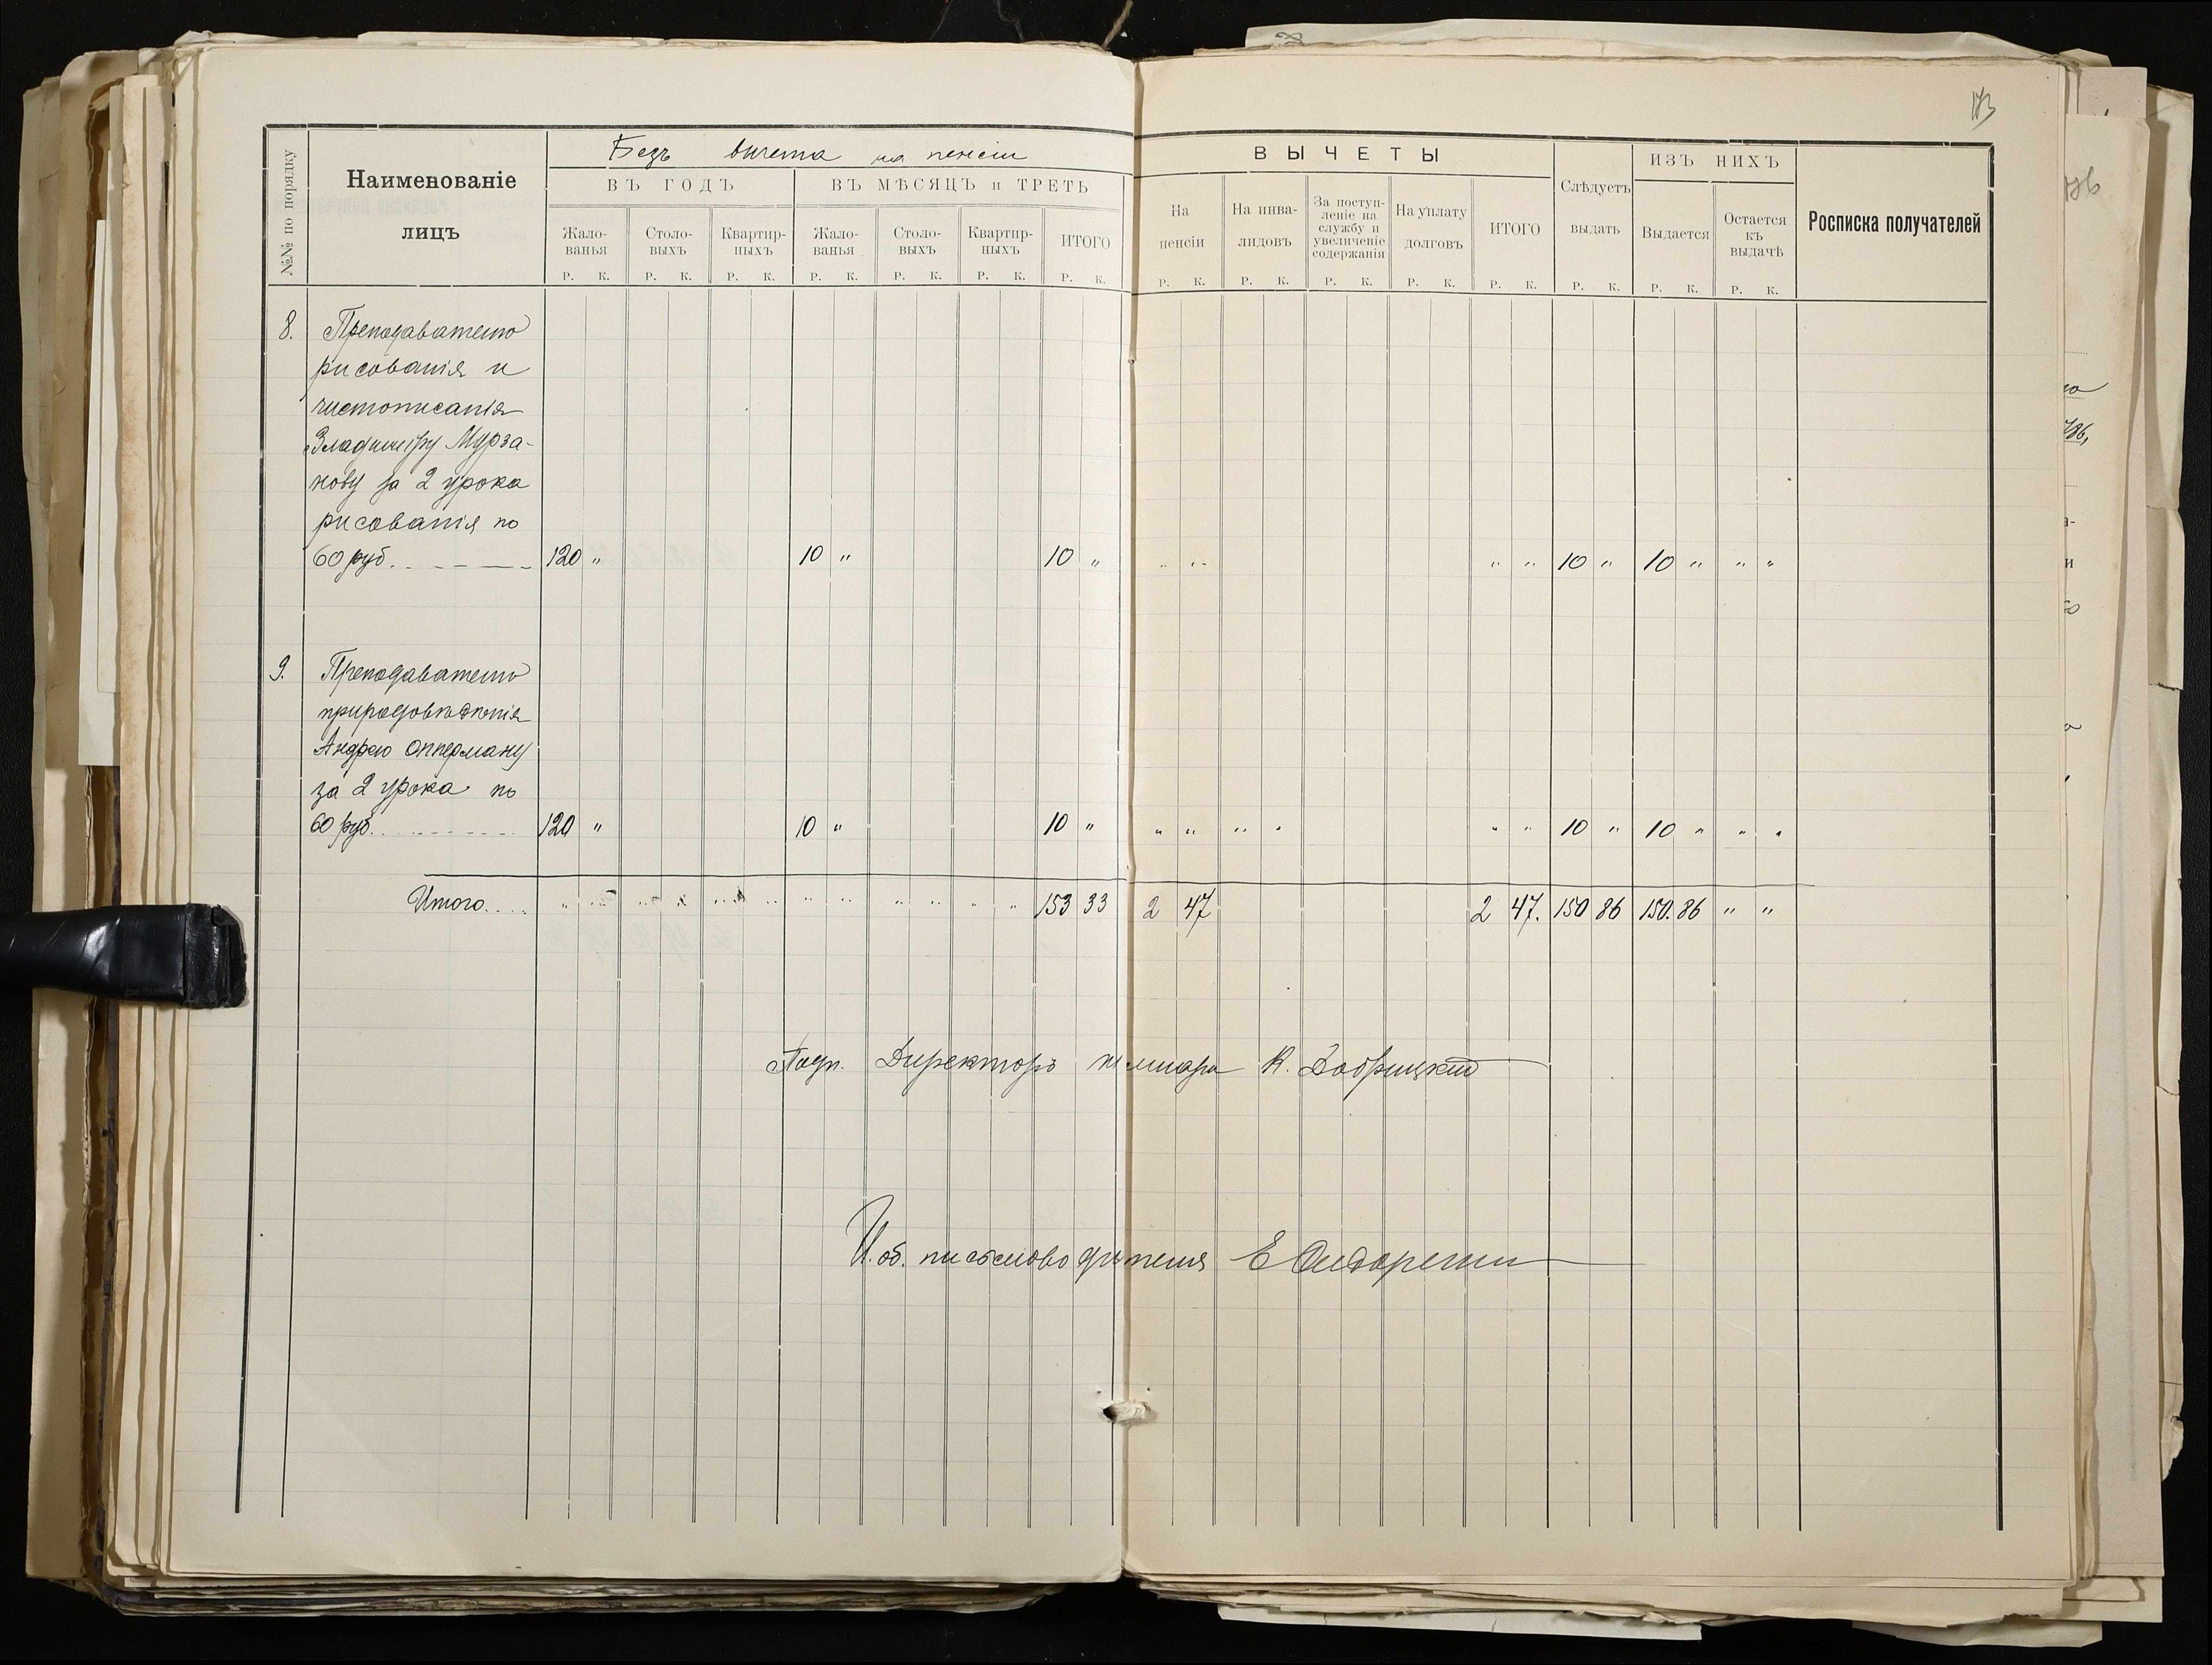 173
№№ по порядку
Наименованіе
лицъ
Безъ вычета на пенсіи
ВЪ ГОДЪ
ВЪ МѢСЯЦЪ и ТРЕТЬ
Жало-
ванья
Столо-
выхъ
Квартир-
ныхъ
Жало-
ванья
Столо-
выхъ
Квартир-
ныхъ
ИТОГО
Р. К. Р. К. Р. К. Р. К. Р. К. Р. К. Р. К.
ВЫЧЕТЫ
На
пенсіи
На инва-
лидовъ
За поступ-
леніе на
службу и
увеличеніе
содержанія
На уплату
долговъ
ИТОГО
Слѣдуетъ
выдать
ИЗЪ НИХЪ
Выдается
Остается
къ
выдачѣ
Росписка получателей
Р. К. Р. К. Р. К. Р. К. Р. К. Р. К. Р. К. Р. К.
8. Преподавателю
рисованія и
чистописанія
Владиміру Мурза-
нову за 2 урока
рисованія по
60 руб. 120 " 10 " 10 " " " " " 10 " 10 " " "
9. Преподавателю
природовѣдѣнія
Андрею Опперману
за 2 урока по
60 руб. 120 " 10 " 10 " " " " " " " 10 " 10 " " "
Итого.... " " " " " " " " " " " " 153 33 2 47 2 47. 150 86 150.86 " "
Подп. Директоръ К. Добрицкій
И. об. письмоводителя Е